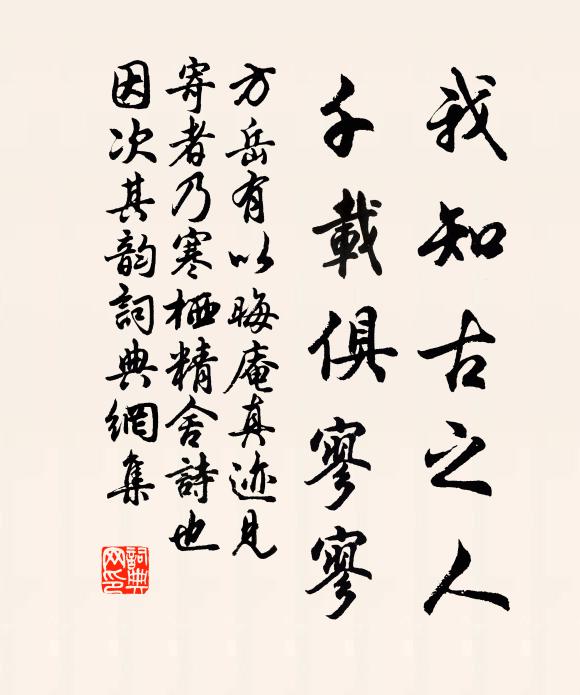 我知古之人
千載俱寥寥
方岳有以晦庵真迹見
寄者乃寒栖精舍詩也
因次其韵詞典網集
詞典网印